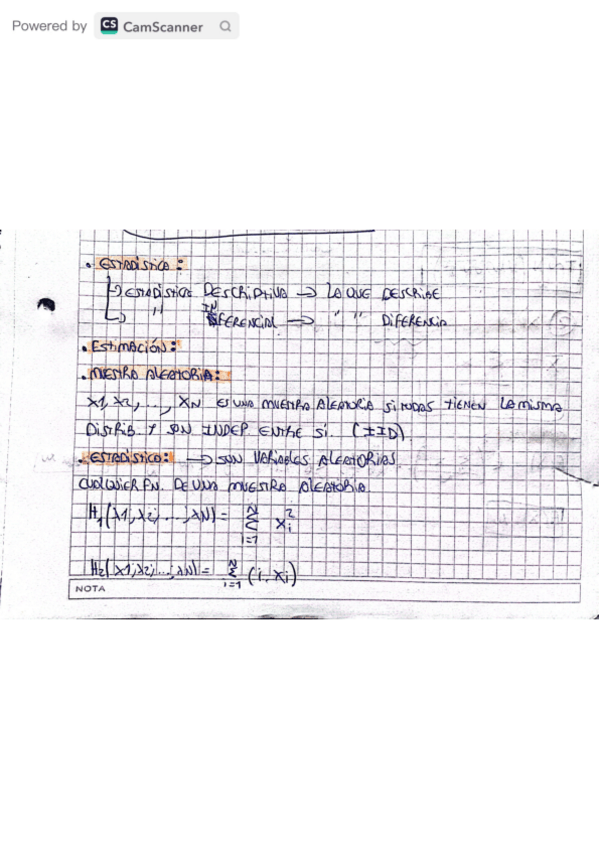 Powered by CS CamScanner
• ESTADÍSTICA:
→ ESTADÍSTICA DESCRIPTIVA → LA QUE DESCRIBE
→ " INFERENCIAL → " " DIFERENCIA
• ESTIMACIÓN:
• MUESTRA ALEATORIA:
X1, X2, ..., XN ES UNA MUESTRA ALEATORIA SI TODAS TIENEN LA MISMA
DISTRIB. Y SON INDEP ENTRE SÍ. (IID)
• ESTADÍSTICO: → SON VARIABLES ALEATORIAS
CUALQUIER FN. DE UNA MUESTRA ALEATORIA
H1(X1, X2, ..., XN) = N Σ i=1 Xi²
H2(X1, X2, ..., XN) = N Σ i=1 (i. Xi)
NOTA